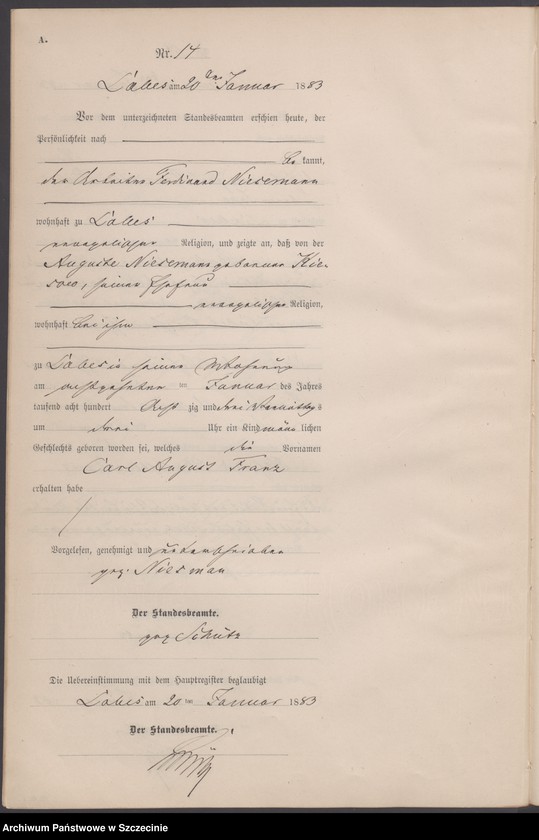 A.
Nr. 14
Labes am 20ten Januar 1883
Vor dem unterzeichneten Standesbeamten erschien heute, der
Persönlichkeit nach
be kannt,
der Arbeiter Ferdinand Niesemann
wohnhaft zu Labes
evangelischer Religion, und zeigte an, daß von der
Auguste Niesemann geborene Kie-
sow, seiner Ehefrau
evangelischer Religion,
wohnhaft bei ihm
zu Labes in seiner Wohnung
am achtzehnten ten Januar des Jahres
tausend acht hundert Acht zig und drei Vormittags
um drei Uhr ein Kind männ lichen
Geschlechts geboren worden sei, welches die Vornamen
Carl August Franz
erhalten habe
Vorgelesen, genehmigt und unterschrieben
gez. Niesman
Der Standesbeamte.
gez Schütz
Die Uebereinstimmung mit dem Hauptregister beglaubigt
Labes am 20 ten Januar 1883
Der Standesbeamte.
Archiwum Państwowe w Szczecinie